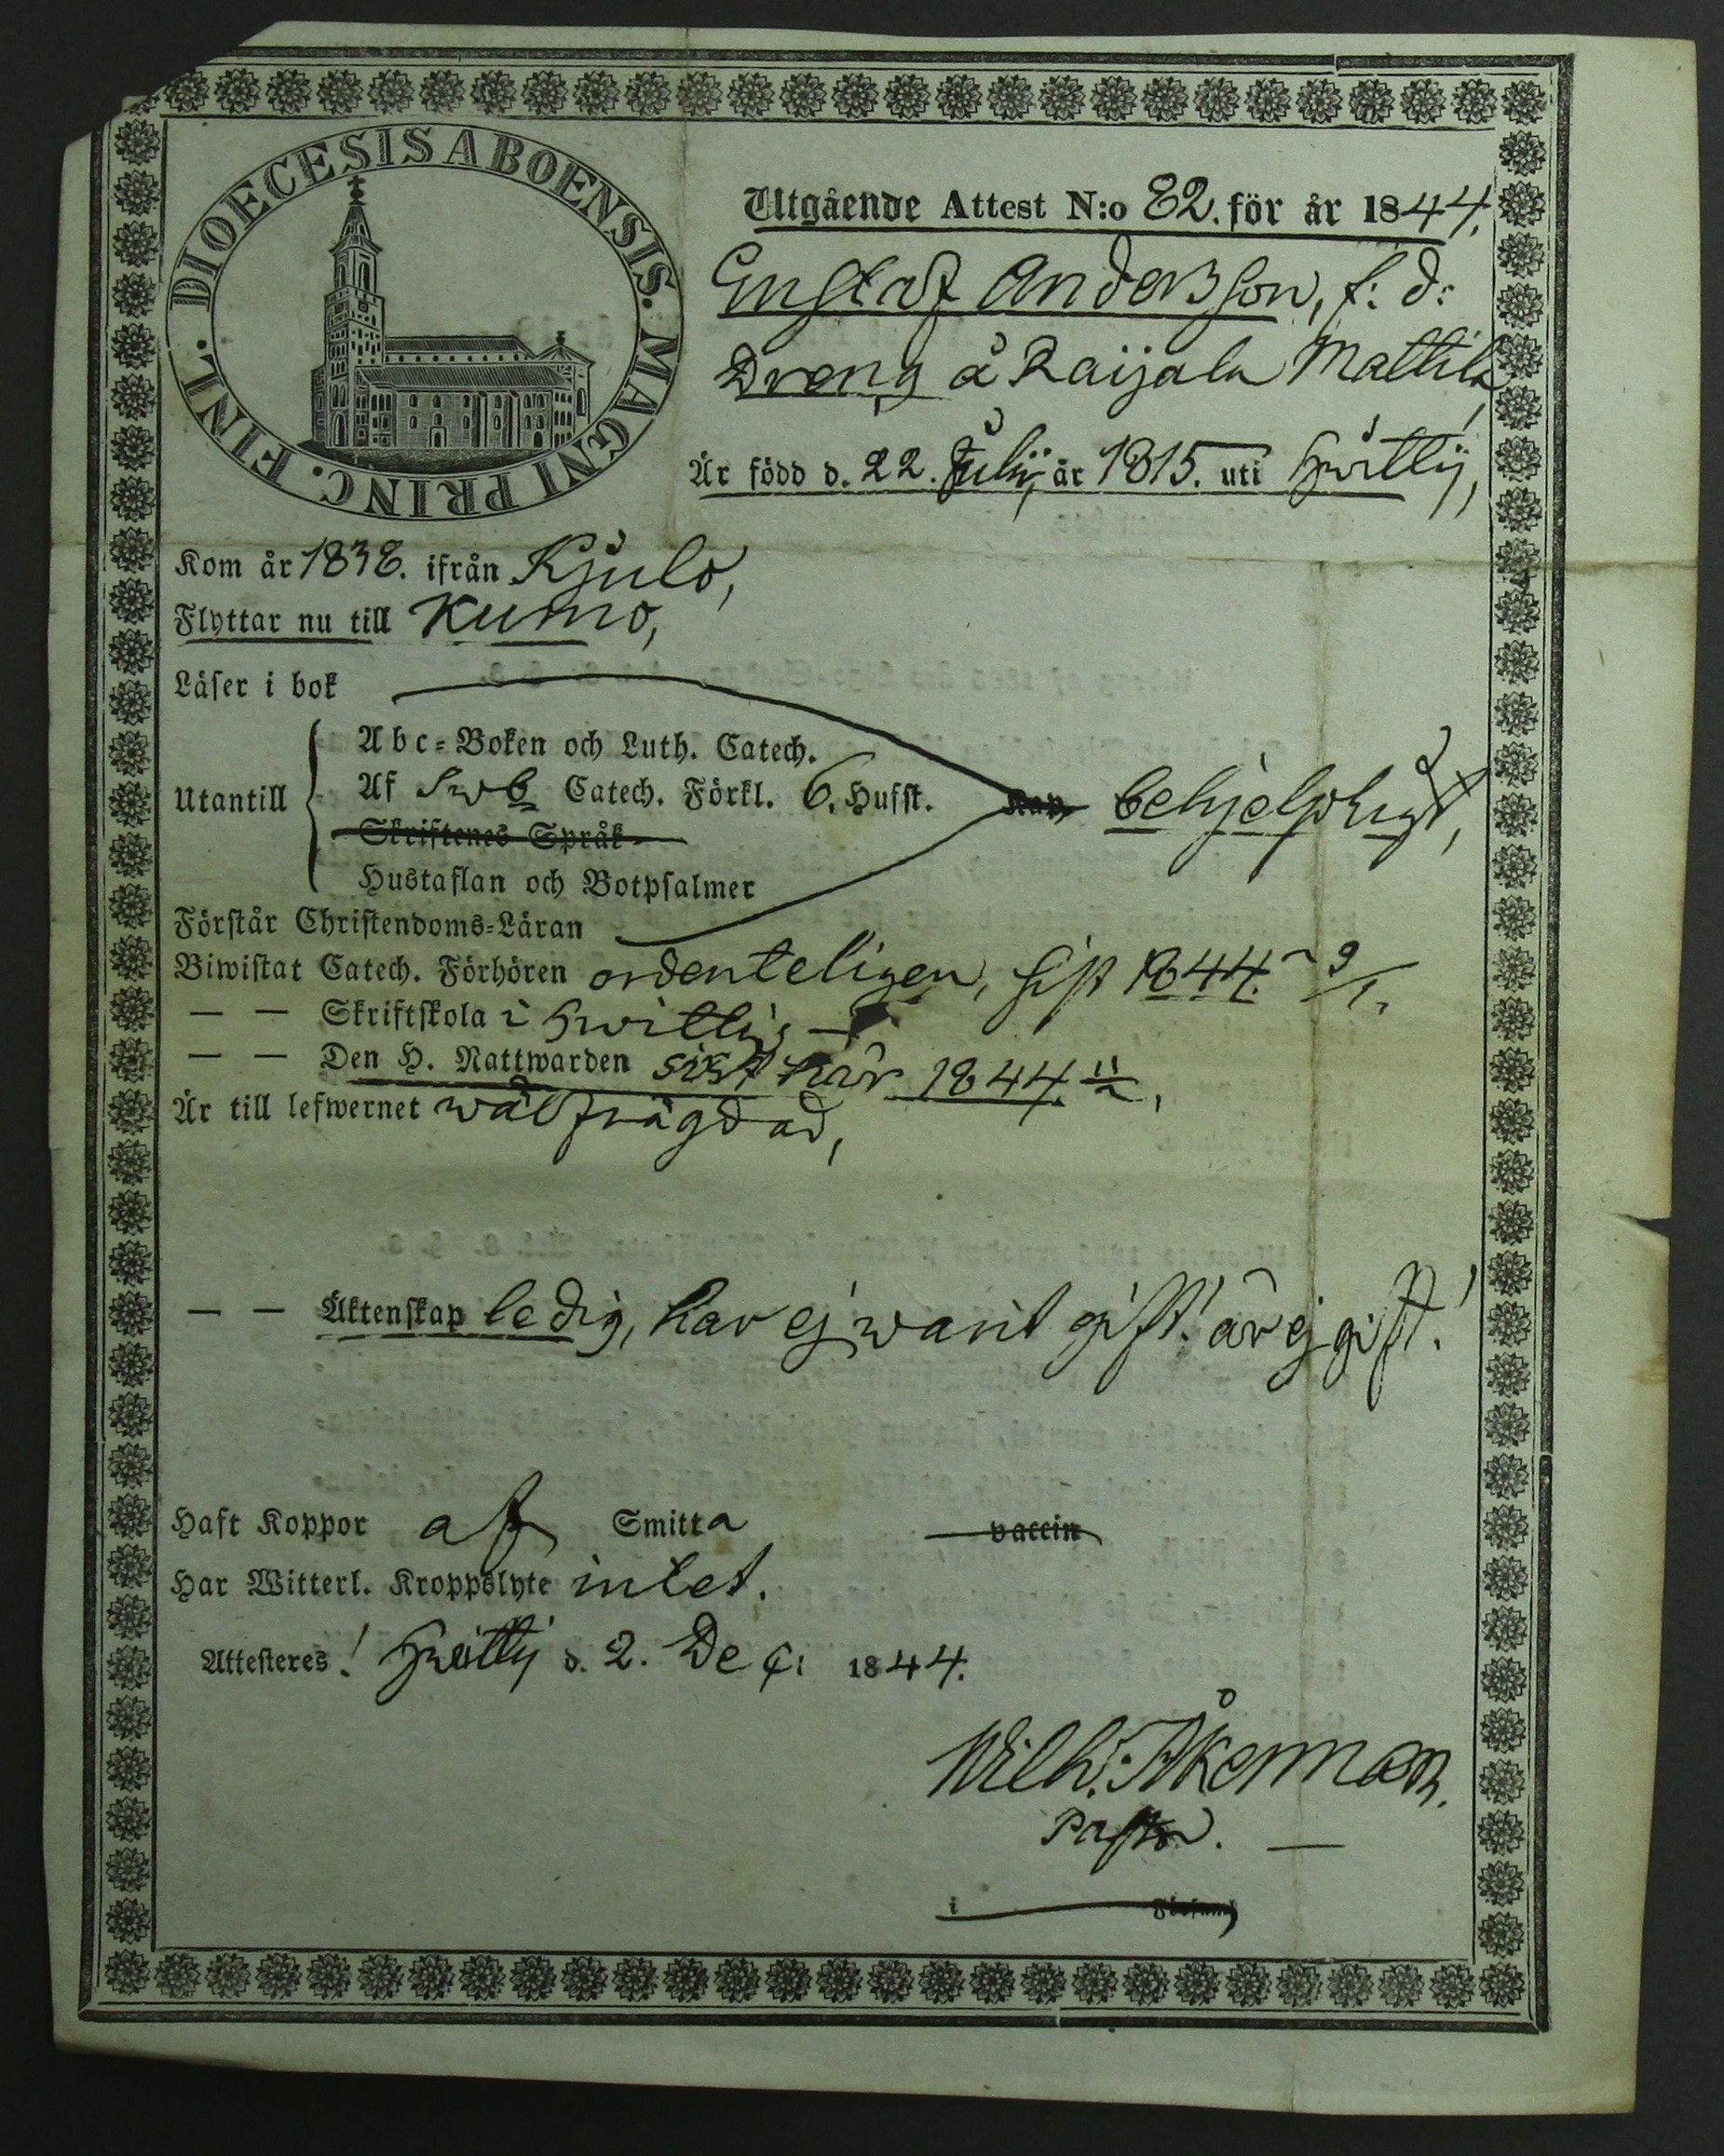 DIOECESIS ABOENSIS. MAGNI PRINC. FINL.
Utgående Attest N:o 82. för år 1844.
Gustaf Andersson, f: d:
Dreng å Raijala Mattila,
Är född d. 22. Julij, år 1815. uti Hvittis,
Kom år 1838. ifrån Kjulo,
Flyttar nu till Kumo,
Läser i bok
Abc-Boken och Luth. Catech.
Utantill Af Sweb Catech. Förkl. 6. Hufst. Kan behjelpligt,
Skriftenes Språk
Hustaflan och Botpsalmer
Förstår Christendoms-Läran
Biwistat Catech. Förhören ordenteligen, sist 1844. 9/1.
— — Skriftskola i Hwittis
— — Den H. Nattwarden sist här 1844. 11/2,
Är till lefwernet wälfrägdad,
— — Äktenskap ledig, har ej warit gift! är ej gift!
Haft Koppor af Smitta vaccin
Har Witterl. Kroppslyte intet.
Attesteres! Hvittis d. 2. Dec: 1844.
Wilh: Åkerman.
Pastor. —
i